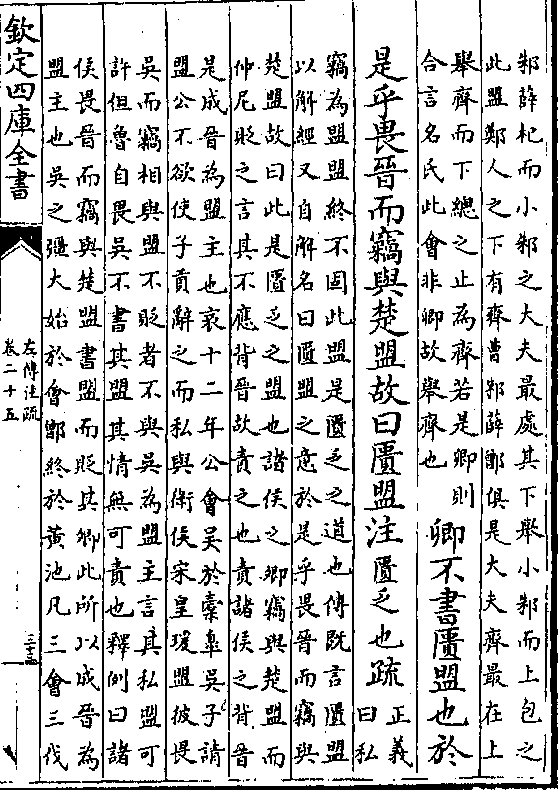 邾薛杞而小邾之大夫最處其下舉小邾而上包之
此盟鄭人之下有齊曹邾薛鄫俱是大夫齊最在上
舉齊而下總之止為齊若是卿則
合言名氏此會非卿故舉齊也
卿不書匱盟也於
是乎畏晉而竊與楚盟故曰匱盟注匱乏也疏
正義
曰私
竊為盟盟終不固此盟是匱乏之道也傳既言匱盟
以解經又自解名曰匱盟之意於是乎畏晉而竊與
楚盟故曰此是匱乏之盟也諸侯之卿竊與楚盟而
仲尼貶之言其不應背晉故責之也責諸侯之背晉
是成晉為盟主也哀十二年公會吳於橐臯吳子請
盟公不欲使子貢辭之而私與衛侯宋皇瑗盟彼畏
吳而竊相與盟不貶者不與吳為盟主言其私盟可
許但魯自畏吳不書其盟其情無可責也釋例曰諸
侯畏晉而竊與楚盟書盟而貶其卿此所以成晉為
盟主也吳之彊大始於會鄫終於黃池凡三會三伐
欽定四庫全書
左傳注疏
卷二十五